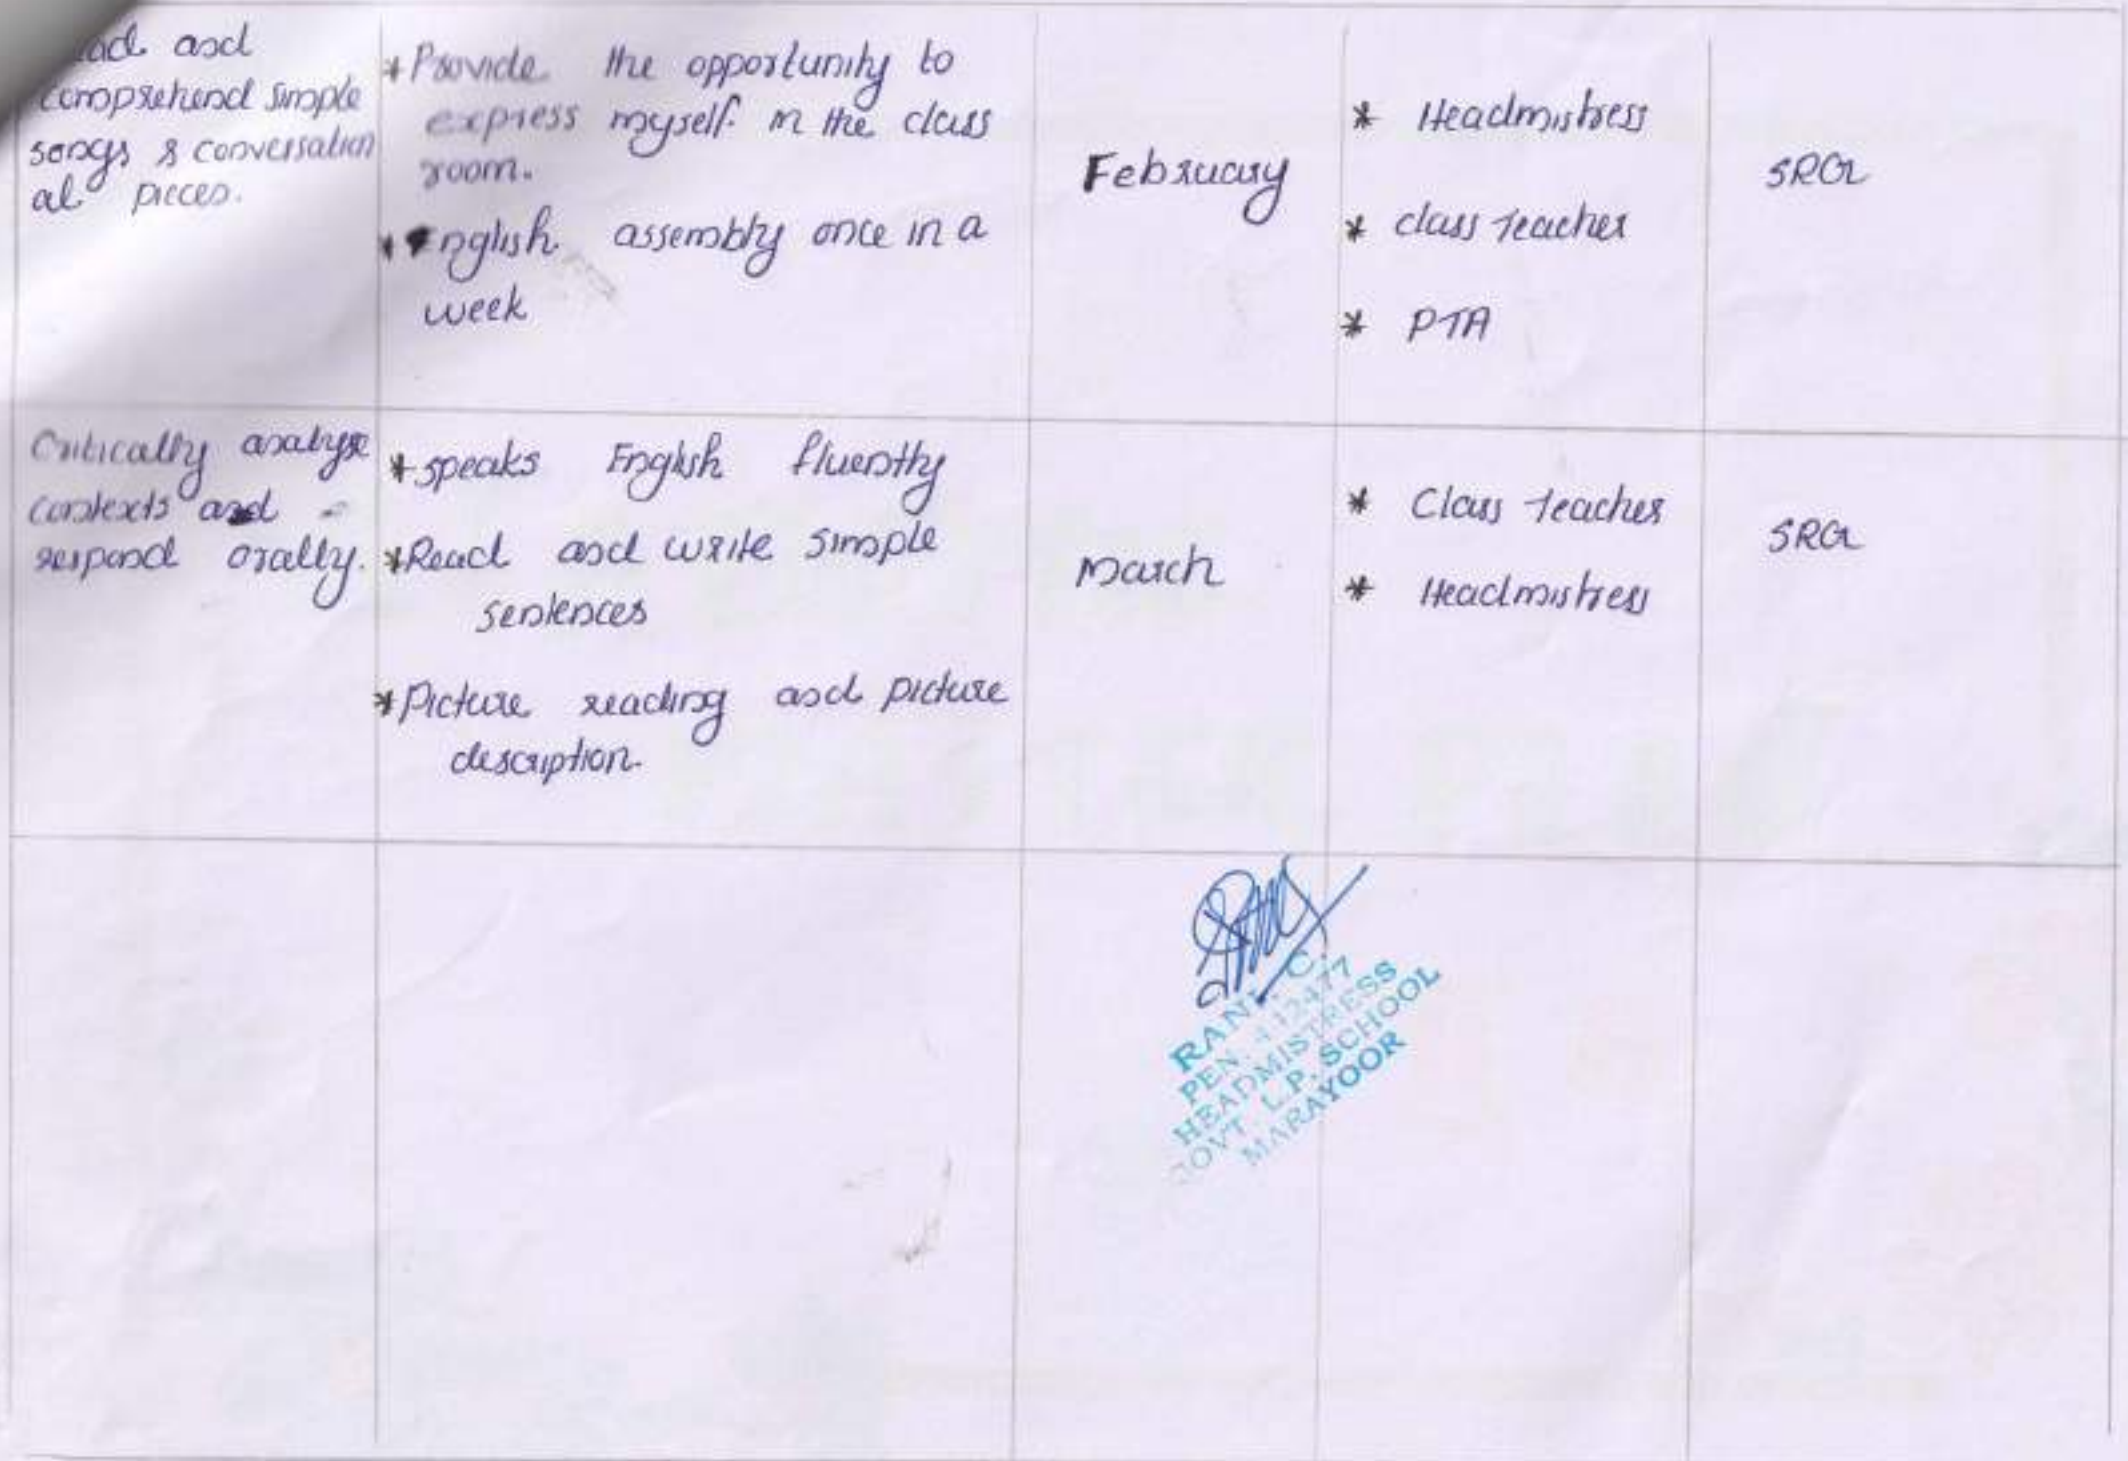 and
comprehend simple
songs & conversation
al pieces.
* Provide the opportunity to
express myself in the class
room.
* English assembly once in a
week
February
* Headmistress
* class teacher
* PTA
SRG
Critically analyse
contexts and
respond orally.
* speaks English fluently
* Read and write simple
sentences
* Picture reading and picture
description.
March
* Class teacher
* Headmistress
SRG
RANI. C.
PEN. 412477
HEADMISTRESS
GOVT L.P. SCHOOL
MARAYOOR